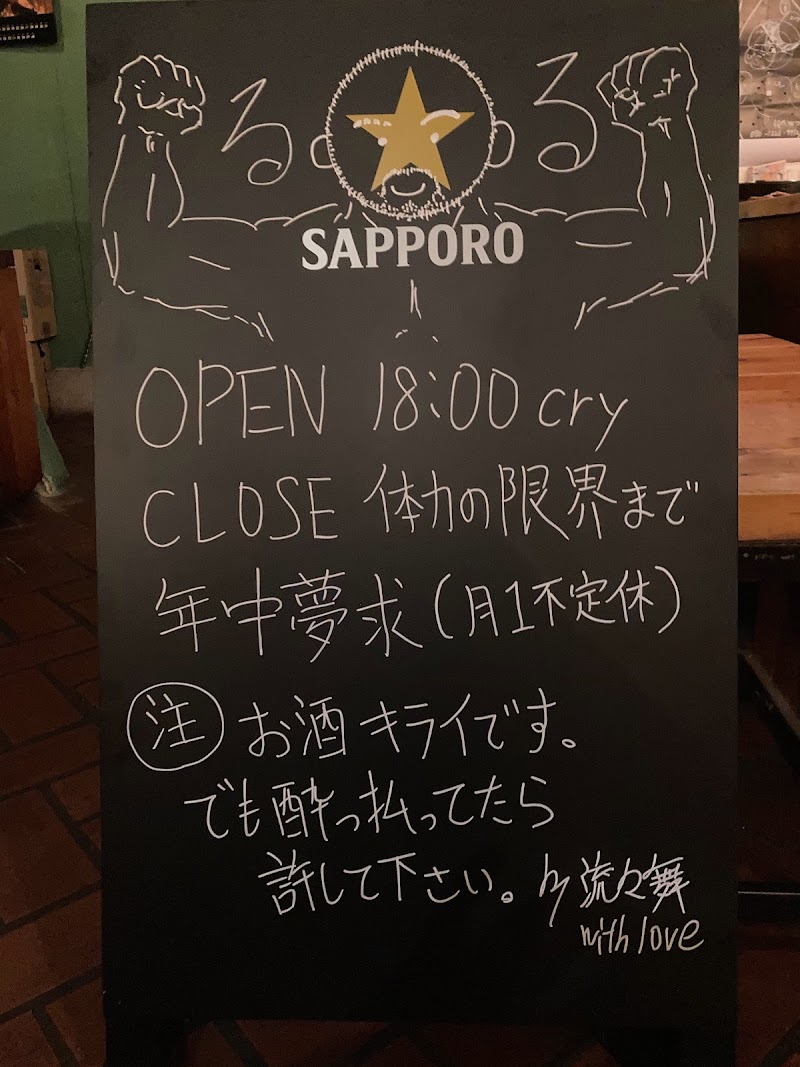 るる
SAPPORO
OPEN 18:00 cry
CLOSE 体力の限界まで
年中夢求(月1不定休)
注 お酒キライです。
でも酔っ払ってたら
許して下さい。by 流々舞
with love